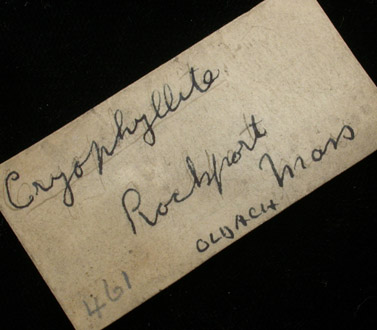 Cryophyllite
Rockport
Mass
OLDACH
461